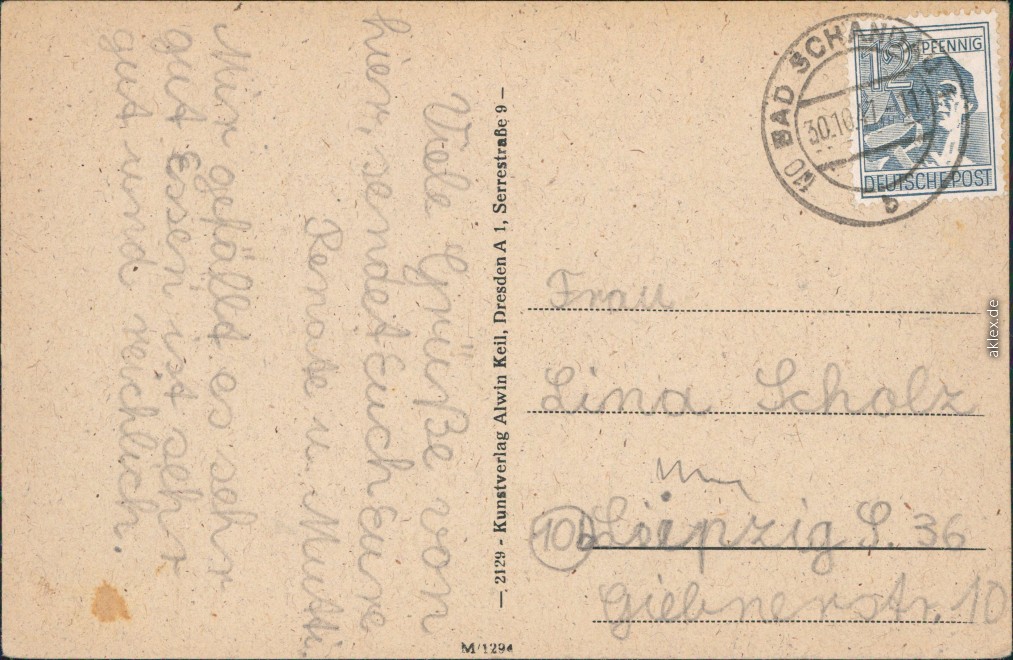 Viele Grüße von
hier, sendet Euch Eure
Renate u. Mutti
Mir gefällt es sehr
gut Essen ist sehr
gut und reichlich.
— 2129 - Kunstverlag Alwin Keil, Dresden A 1, Serrestraße 9 —
M/1294
BAD SCHANDAU
30.10.
b
12 PFENNIG
DEUTSCHE POST
Frau
Lina Scholz
in
10b Leipzig S. 36
Giebnerstr. 10
aklex.de